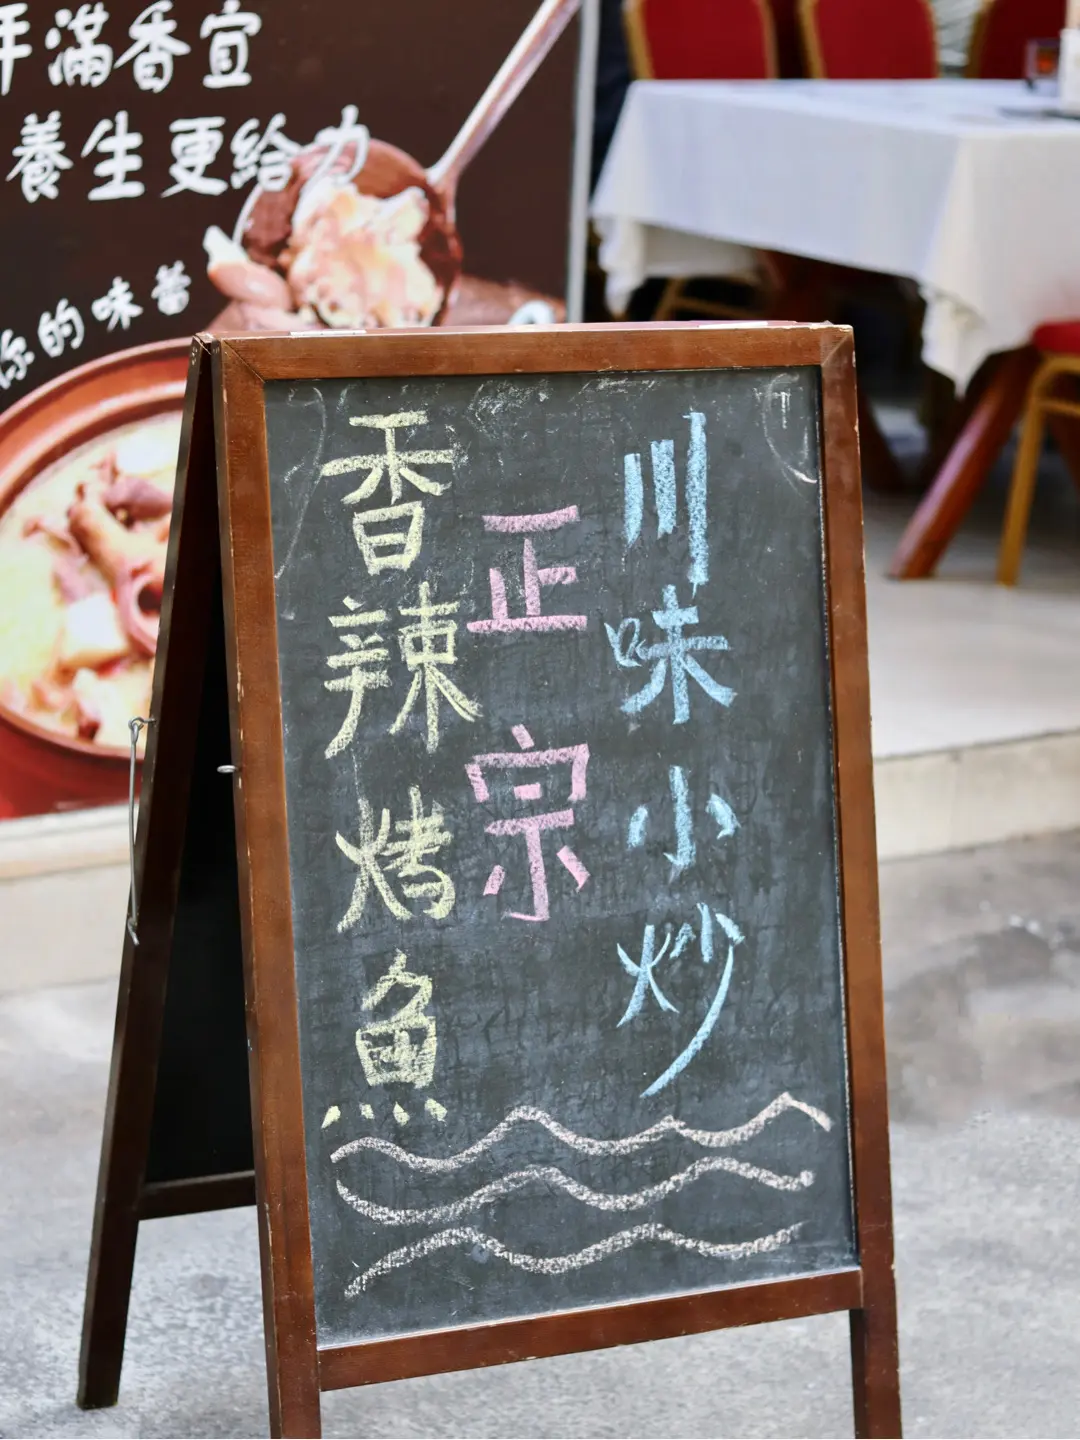 滿香宣
養生更給力
你的味
川味小炒
正宗
香辣烤魚